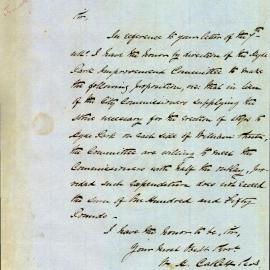 Sir,
In reference to your letter of the 7th
ulto. I have the honor by direction of the Hyde
Park Improvement Committee to make
the following proposition, viz that in lieu
of the City Commissioners supplying the
stone necessary for the erection of steps to
Hyde Park on each side of William Street,
the Committee are willing to meet the
Commissioners with half the outlay, pro-
vided such expenditure does not exceed
the sum of One Hundred and Fifty
Pounds.
I have the honor to be, Sir,
Your Most Obdt Servt